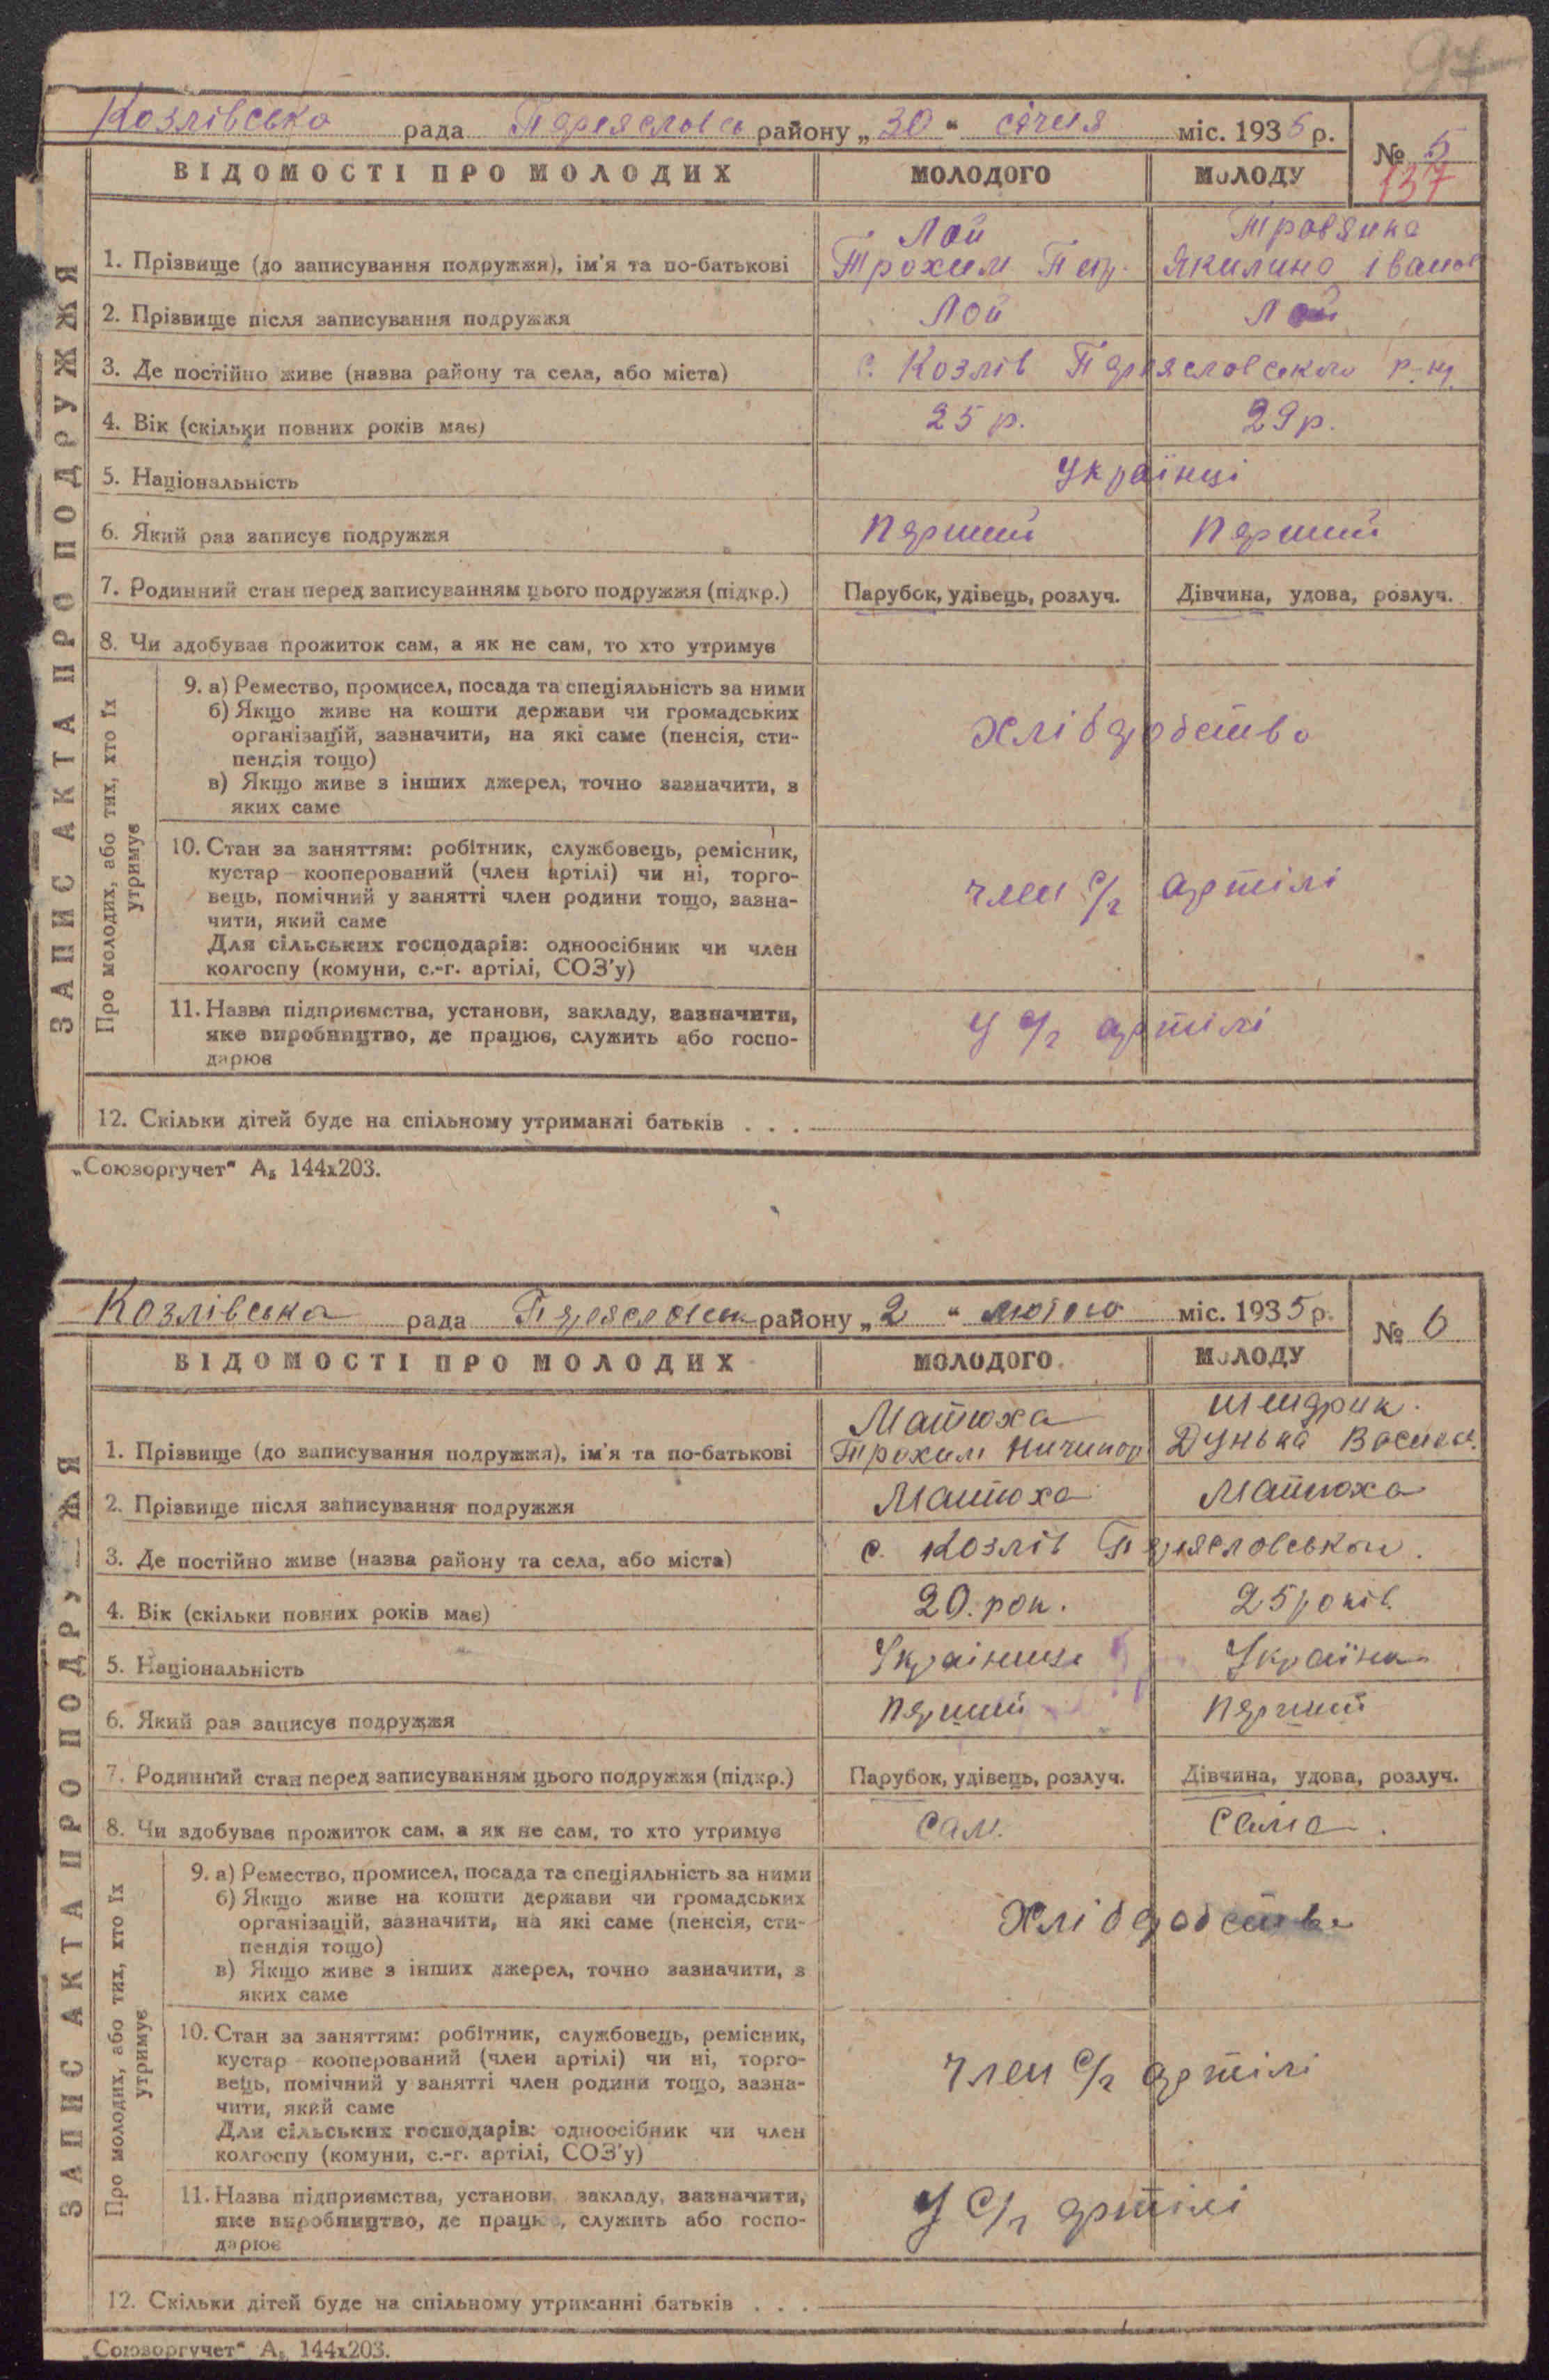 97
Козлівська рада Переяславськ району „30“ січня міс. 1935 р.
№ 5
137
ВІДОМОСТІ ПРО МОЛОДИХ МОЛОДОГО МОЛОДУ
ЗАПИС АКТА ПРО ПОДРУЖЖЯ
Лой Травянка
1. Прізвище (до записування подружжя), ім'я та по-батькові Трохим Пет. Якилина Іванов
2. Прізвище після записування подружжя Лой Лой
3. Де постійно живе (назва району та села, або міста) с. Козлів Переясловсько р-ну
4. Вік (скільки повних років має) 25 р. 29 р.
5. Національність Українці
6. Який раз записує подружжя перший перший
7. Родинний стан перед записуванням цього подружжя (підкр.) Парубок, удівець, розлуч. Дівчина, удова, розлуч.
8. Чи здобуває прожиток сам, а як не сам, то хто утримує
Про молодих, або тих, хто їх утримує
9. а) Ремество, промисел, посада та спеціяльність за ними
б) Якщо живе на кошти держави чи громадських
організацій, зазначити, на які саме (пенсія, сти-
пендія тощо)
в) Якщо живе з інших джерел, точно зазначити, з
яких саме
Хліборобство
10. Стан за заняттям: робітник, службовець, ремісник,
кустар кооперований (член артілі) чи ні, торго-
вець, помічний у занятті член родини тощо, зазна-
чити, який саме
Для сільських господарів: одноосібник чи член
колгоспу (комуни, с.-г. артілі, СОЗ'у)
член с/г артілі
11. Назва підприємства, установи, закладу, зазначити,
яке виробництво, де працює, служить або госпо-
дарює
У с/г артілі
12. Скільки дітей буде на спільному утриманні батьків . . .
„Союзоргучет“ А₅ 144х203.
Козлівська рада Переясловськ району „2“ лютого міс. 1935 р.
№ 6
ВІДОМОСТІ ПРО МОЛОДИХ МОЛОДОГО МОЛОДУ
ЗАПИС АКТА ПРО ПОДРУЖЖЯ
Матюха Шендрик
1. Прізвище (до записування подружжя), ім'я та по-батькові Трохим Ничипор Дунька Васил.
2. Прізвище після записування подружжя Матюха Матюха
3. Де постійно живе (назва району та села, або міста) с. Козлів Переясловськом.
4. Вік (скільки повних років має) 20. рок. 25 років
5. Національність Українець Українка
6. Який раз записує подружжя перший перший
7. Родинний стан перед записуванням цього подружжя (підкр.) Парубок, удівець, розлуч. Дівчина, удова, розлуч.
8. Чи здобуває прожиток сам, а як не сам, то хто утримує сам. сама.
Про молодих, або тих, хто їх утримує
9. а) Ремество, промисел, посада та спеціяльність за ними
б) Якщо живе на кошти держави чи громадських
організацій, зазначити, на які саме (пенсія, сти-
пендія тощо)
в) Якщо живе з інших джерел, точно зазначити, з
яких саме
Хліборобство
10. Стан за заняттям: робітник, службовець, ремісник,
кустар кооперований (член артілі) чи ні, торго-
вець, помічний у занятті член родини тощо, зазна-
чити, який саме
Для сільських господарів: одноосібник чи член
колгоспу (комуни, с.-г. артілі, СОЗ'у)
член с/г артілі
11. Назва підприємства, установи, закладу, зазначити,
яке виробництво, де працює, служить або госпо-
дарює
У с/г артілі
12. Скільки дітей буде на спільному утриманні батьків . . .
„Союзоргучет“ А₅ 144х203.